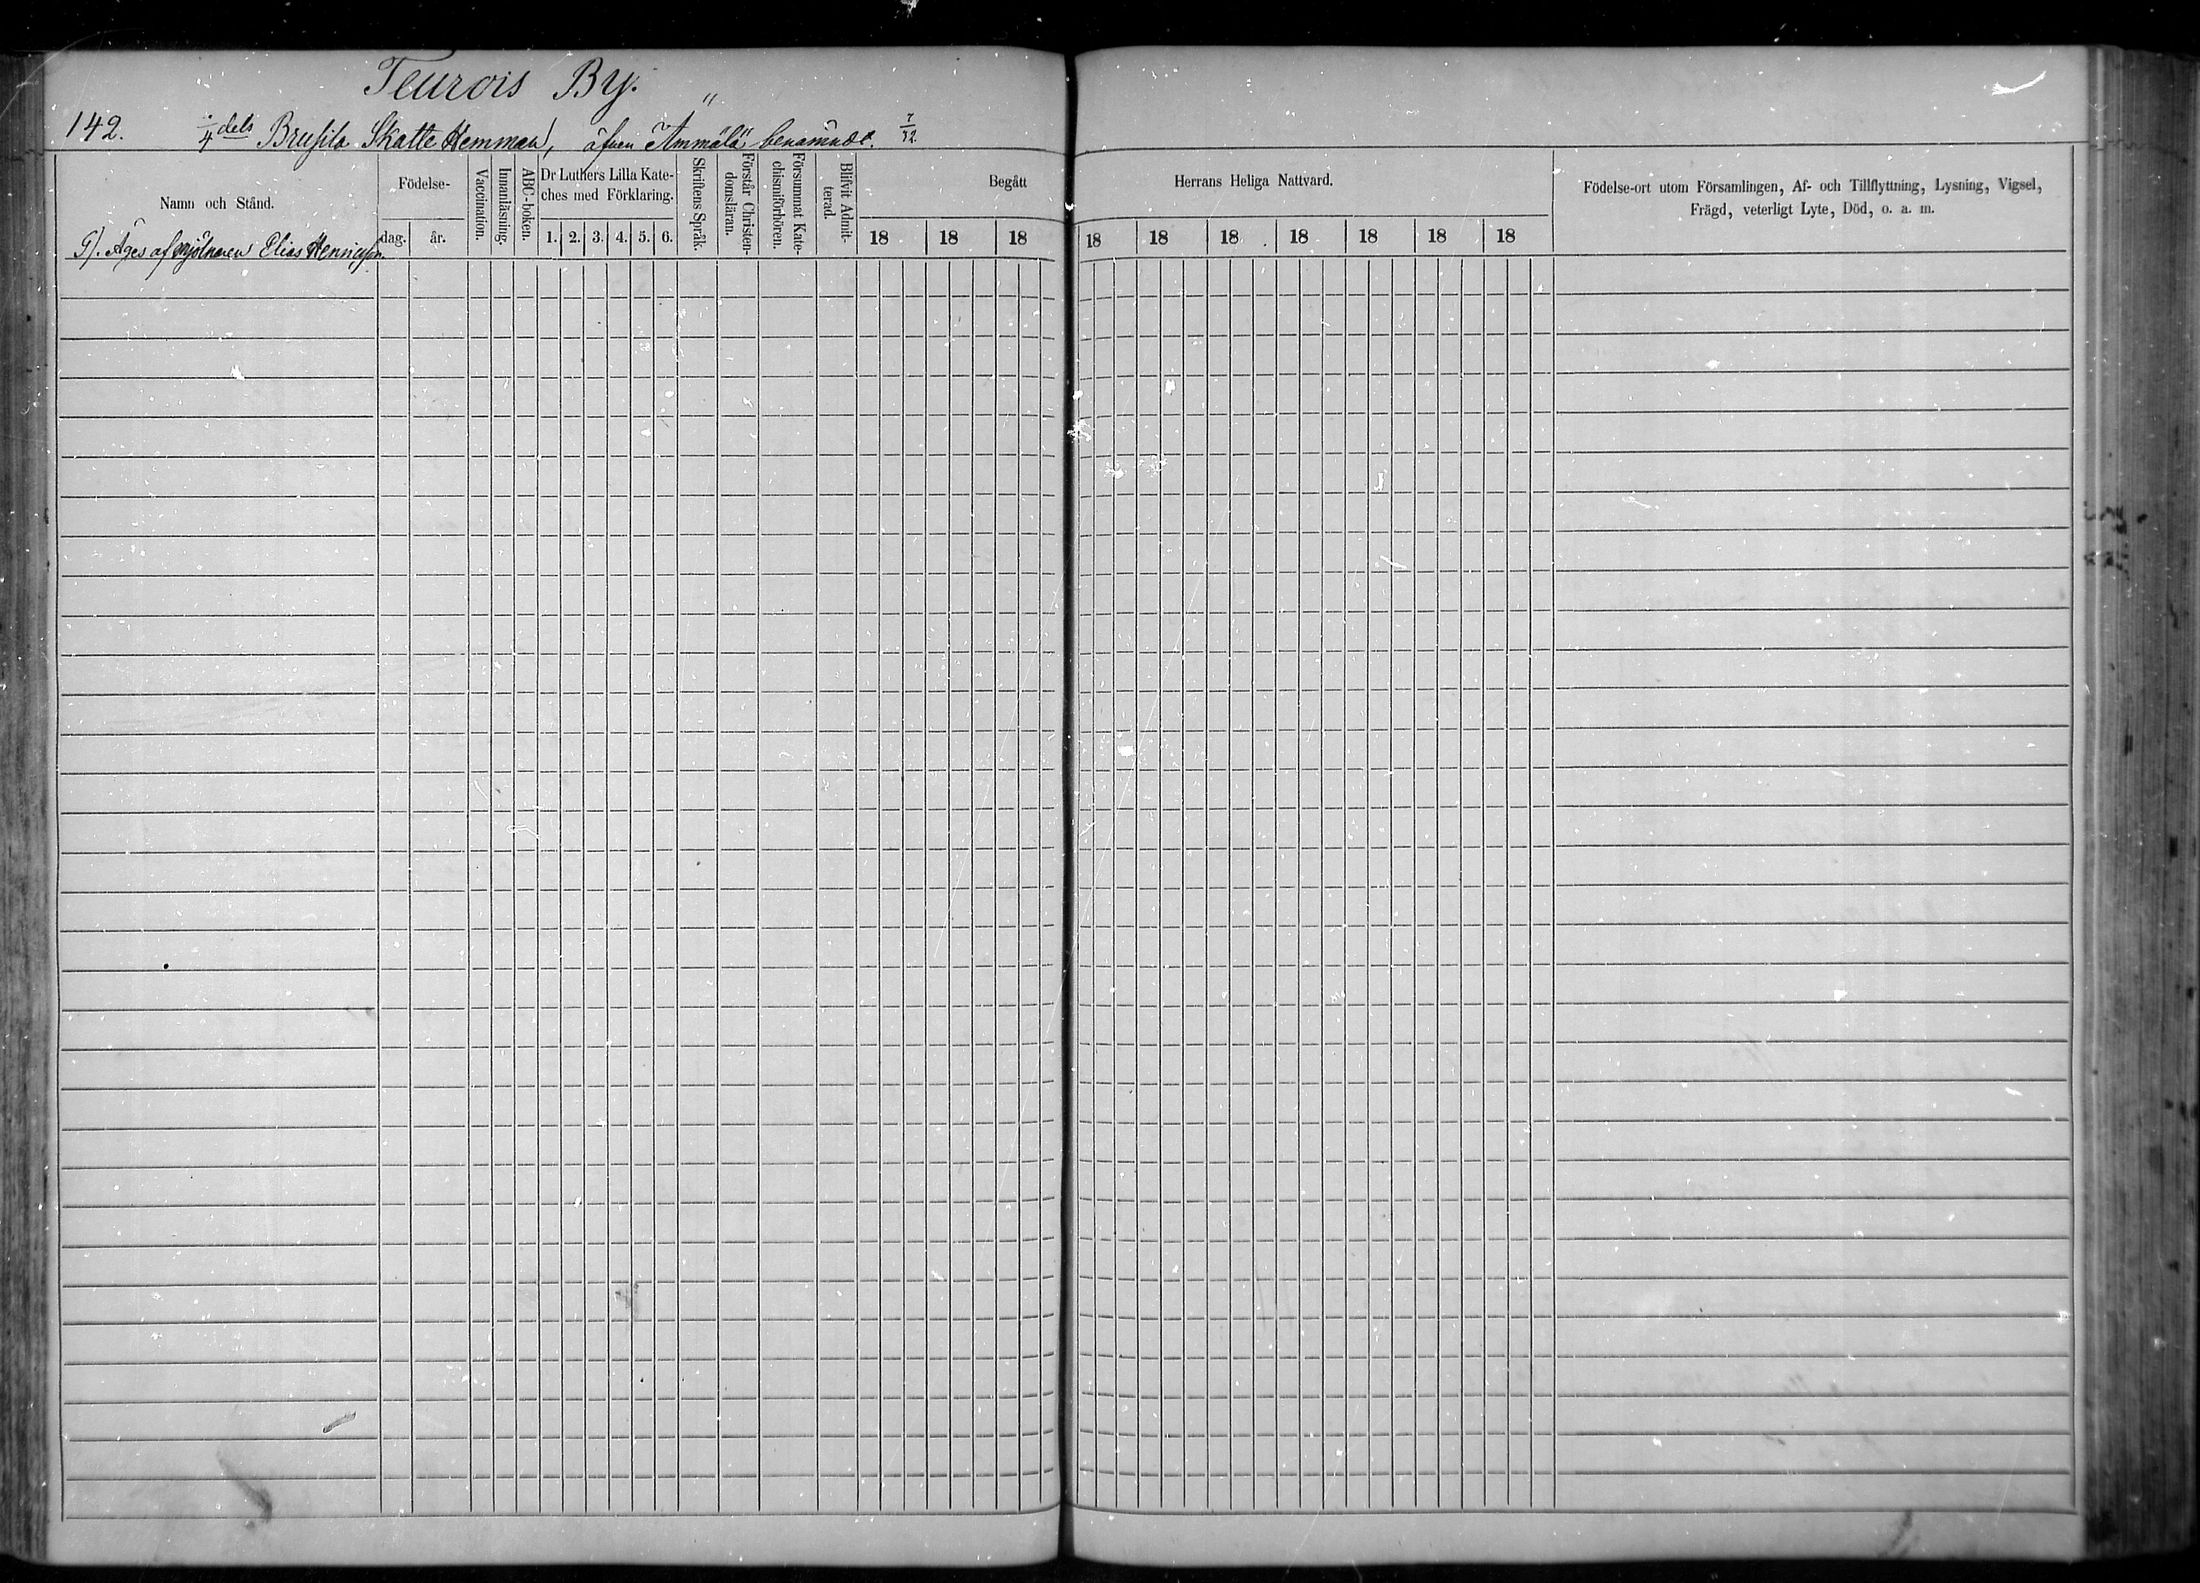 Teurois By.
142. 1/4 dels Brusila Skatte Hemman, äfven "Ammälä" benämndt. 7/32
Namn och Stånd.
Födelse-
dag.
år.
Vaccination.
Innanläsning.
ABC-boken.
Dr Luthers Lilla Kate-
ches med Förklaring.
1. 2. 3. 4. 5. 6.
Skriftens Språk.
Förstår Christen-
domsläran.
Försummat Kate-
chismiförhören.
Blifvit Admit-
terad.
Begått Herrans Heliga Nattvard.
18 18 18 18 18 18 18 18 18 18
Födelse-ort utom Församlingen, Af- och Tillflyttning, Lysning, Vigsel,
Frägd, veterligt Lyte, Död, o. a. m.
G). Äges af mjölnaren Elias Henricsson.